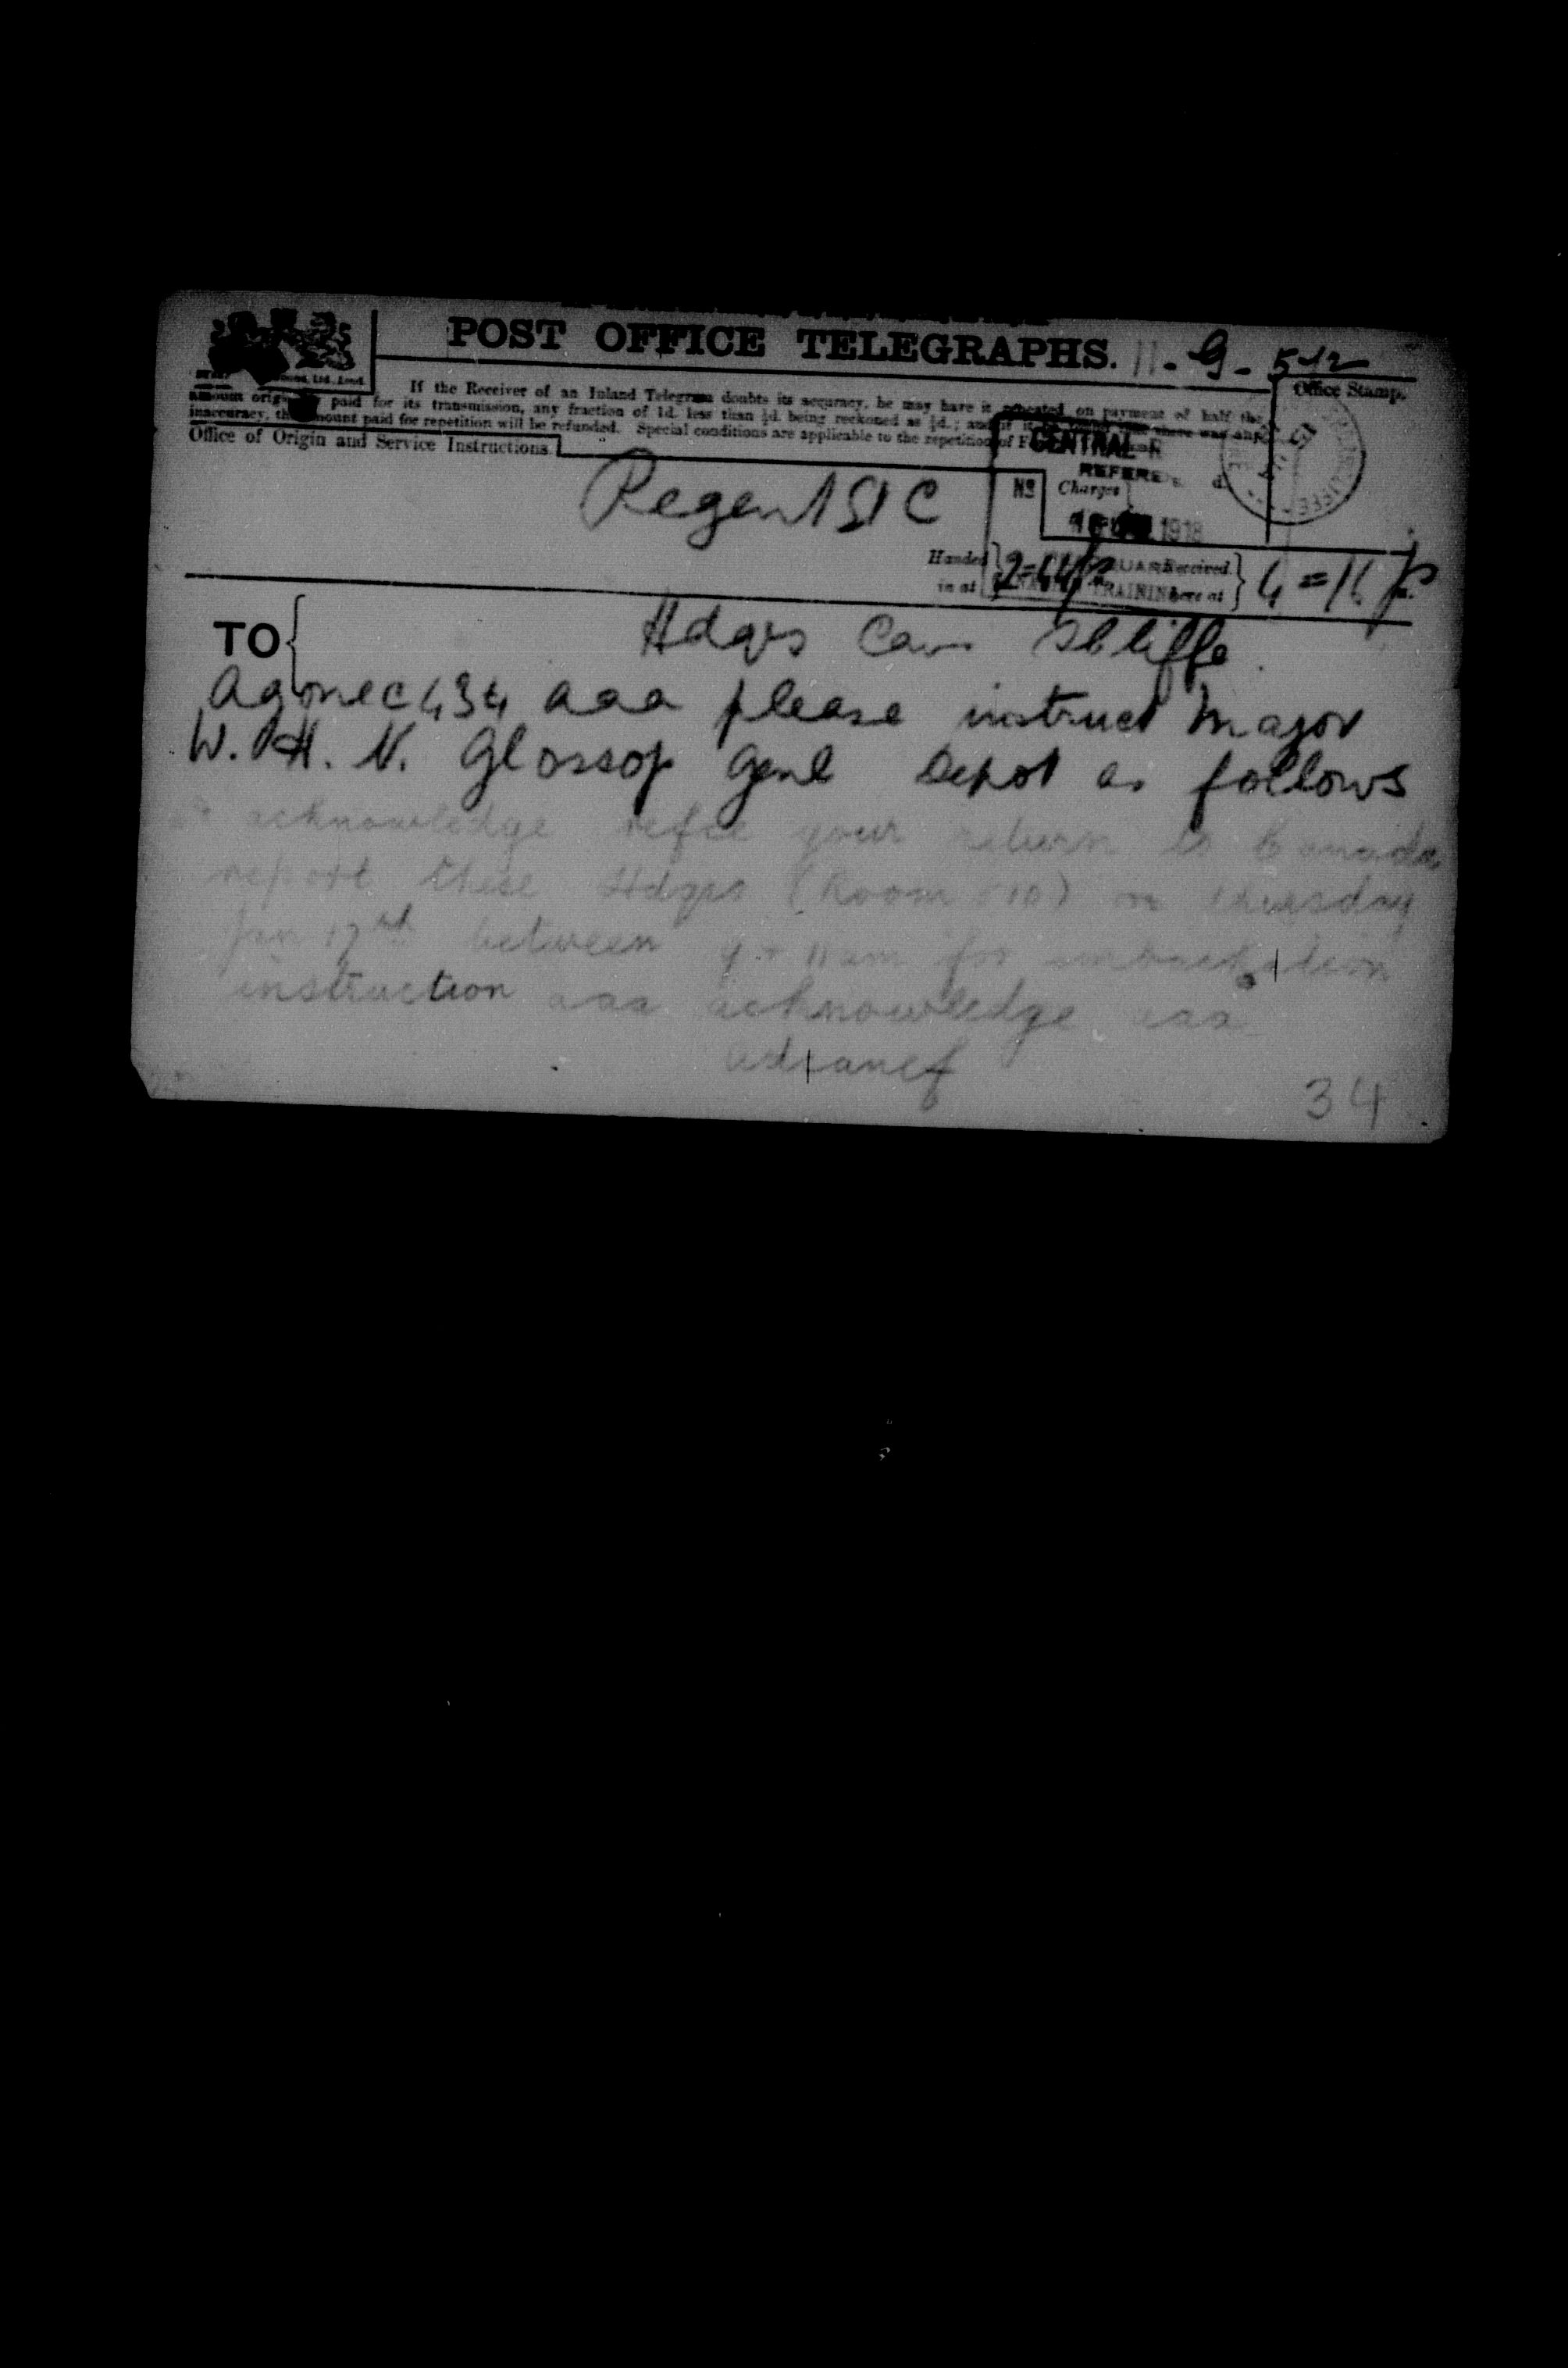 POST OFFICE TELEGRAPHS. 11-G-5-12
If the Receiver of an Inland Telegram doubts its accuracy, he may have it repeated on payment of half the
amount originally paid for its transmission, any fraction of 1d. less than ½d. being reckoned as ½d.; and if it be found that there was any
inaccuracy, the amount paid for repetition will be refunded. Special conditions are applicable to the repetition of
Office of Origin and Service Instructions.
Office Stamp.
CENTRAL
REFERE
Regent St C
No Charges d.
1918
Handed in at 2=44p Received here at 4=16 p
TRAINING
TO
Hdqrs Can Scliffe
Agonec434 aaa please instruct Major
W. H. N. Glossop Genl Depot as follows
acknowledge refce your return to Canada
report these Hdqrs (Room 610) on Thursday
Jan 17th between 9 + 11am for embarkation
instruction aaa acknowledge aaa
34